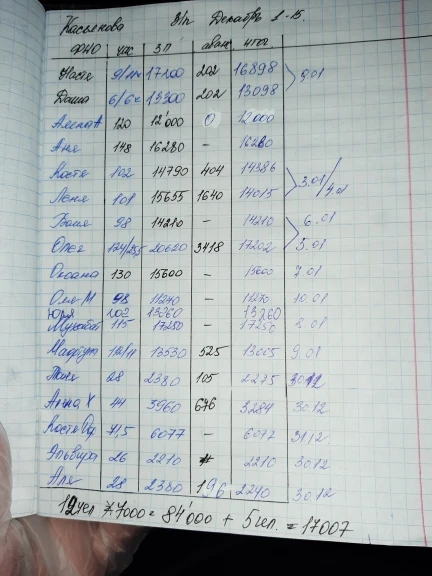 Касьянова З/п Декабрь 1-15.
ФИО час ЗП аванс итог.
Настя 17200 202 16898 9.01
Даша 6/6 13300 202 13098
Алена А 120 12'000 0 12000
Аня 148 16280 - 16280
Костя 102 14790 404 14386 3.01/4.01
Леня 101 15655 1640 14015
Ваня 98 14210 - 14210 6.01
Олег 20620 3418 17202 5.01
Оксана 130 15600 - 15600 7.01
Оля М 98 11270 - 11270 10.01
Юля 102 13260 13260
115 17250 - 17250 8.01
13530 525 13005 9.01
Таня 28 2380 105 2275 30.12
Анна Х 44 3960 676 3284 30.12
Костя 71,5 6077 - 6077 31.12
Эльвира 26 2210 2210 30.12
Аля 28 2380 196 2240 30.12
12чел * 7000 = 84'000 + 5чел. = 17007